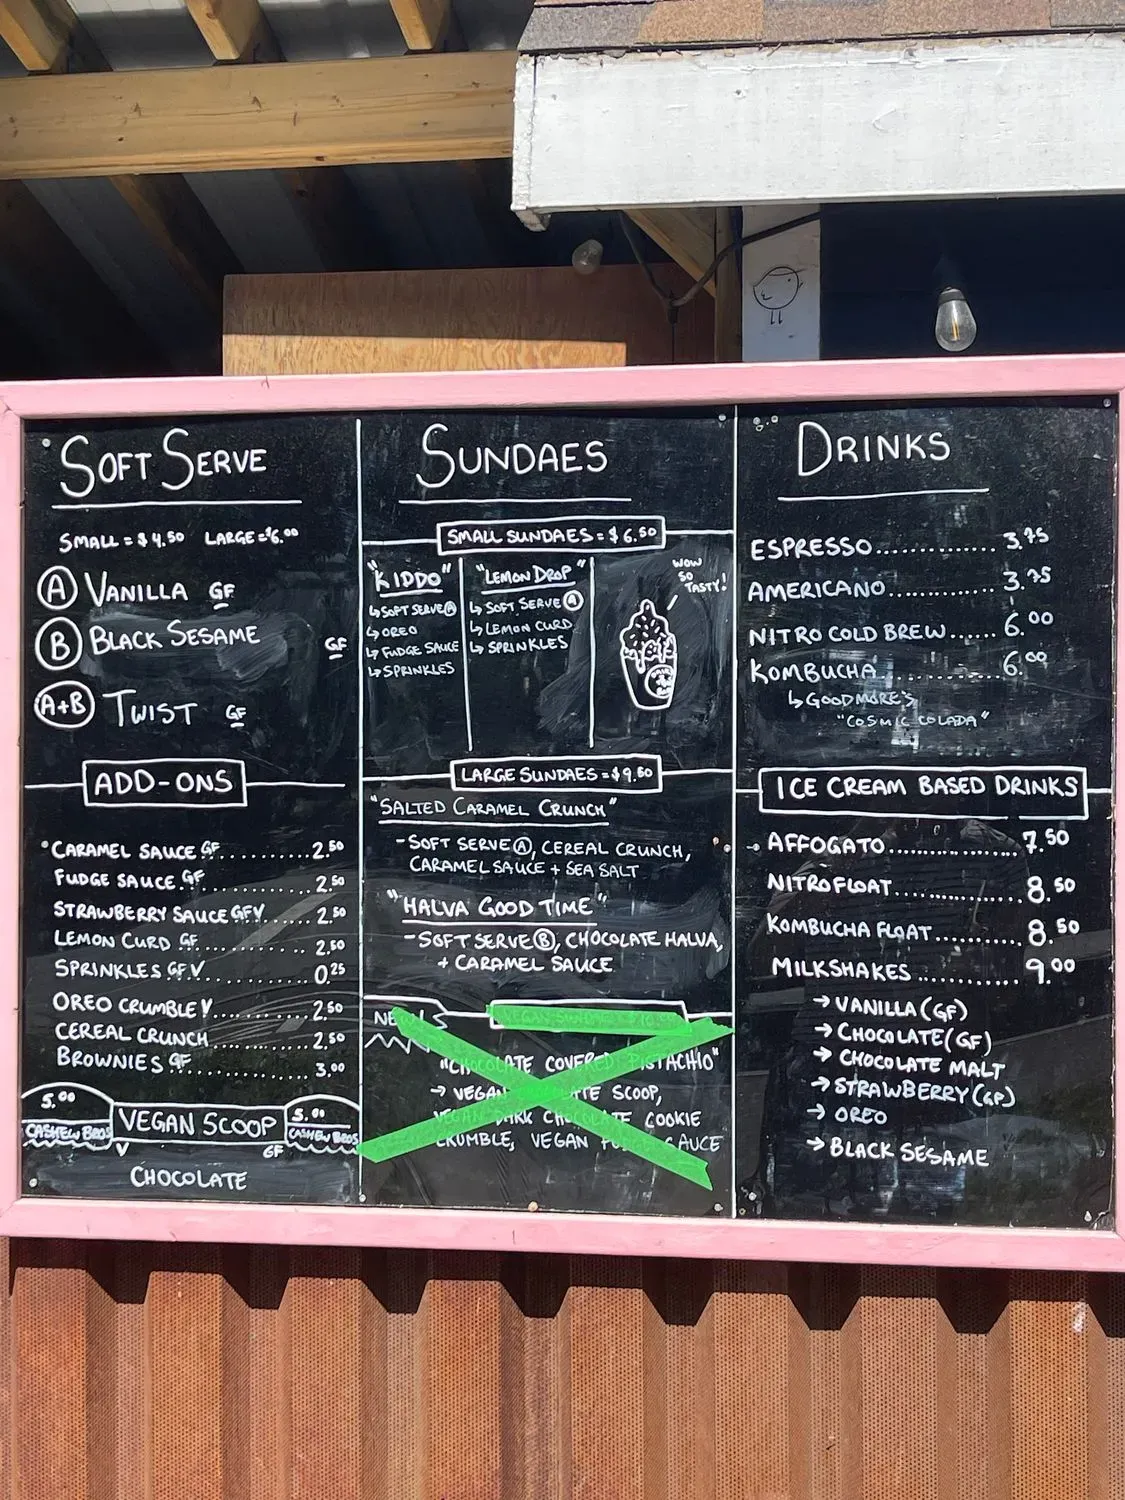 SOFT SERVE
SMALL = $4.50 LARGE = $6.00
A VANILLA GF
B BLACK SESAME GF
A+B TWIST GF
ADD-ONS
CARAMEL SAUCE GF 2.50
FUDGE SAUCE GF 2.50
STRAWBERRY SAUCE GFV 2.50
LEMON CURD GF 2.50
SPRINKLES GFV 0.25
OREO CRUMBLE V 2.50
CEREAL CRUNCH 2.50
BROWNIES GF 3.00
5.00 VEGAN SCOOP 5.00
CASHEW BROS V GF CASHEW BROS
CHOCOLATE
SUNDAES
SMALL SUNDAES = $6.50
"KIDDO"
↳ SOFT SERVE A
↳ OREO
↳ FUDGE SAUCE
↳ SPRINKLES
"LEMON DROP"
↳ SOFT SERVE A
↳ LEMON CURD
↳ SPRINKLES
WOW
SO
TASTY!
LARGE SUNDAES = $9.50
"SALTED CARAMEL CRUNCH"
- SOFT SERVE A, CEREAL CRUNCH,
CARAMEL SAUCE + SEA SALT
"HALVA GOOD TIME"
- SOFT SERVE B, CHOCOLATE HALVA,
+ CARAMEL SAUCE
VEGAN SUNDAE
"CHOCOLATE COVERED PISTACHIO"
→ VEGAN SCOOP,
VEGAN DARK CHOCOLATE COOKIE
CRUMBLE, VEGAN SAUCE
DRINKS
ESPRESSO 3.75
AMERICANO 3.75
NITRO COLD BREW 6.00
KOMBUCHA 6.00
↳ GOODMORE'S
"COSMIC COLADA"
ICE CREAM BASED DRINKS
AFFOGATO 7.50
NITRO FLOAT 8.50
KOMBUCHA FLOAT 8.50
MILKSHAKES 9.00
→ VANILLA (GF)
→ CHOCOLATE (GF)
→ CHOCOLATE MALT
→ STRAWBERRY (GF)
→ OREO
→ BLACK SESAME